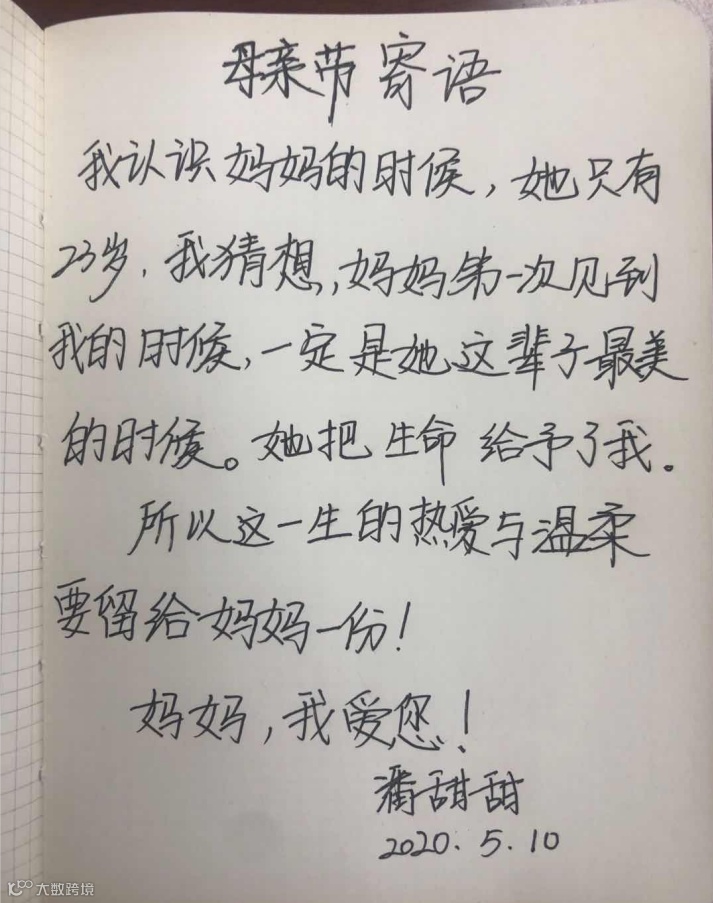 母亲节寄语
我认识妈妈的时候，她只有
23岁，我猜想，妈妈第一次见到
我的时候，一定是她这辈子最美
的时候。她把生命给予了我。
所以这一生的热爱与温柔
要留给妈妈一份！
妈妈，我爱您！
潘甜甜
2020.5.10
大数跨境